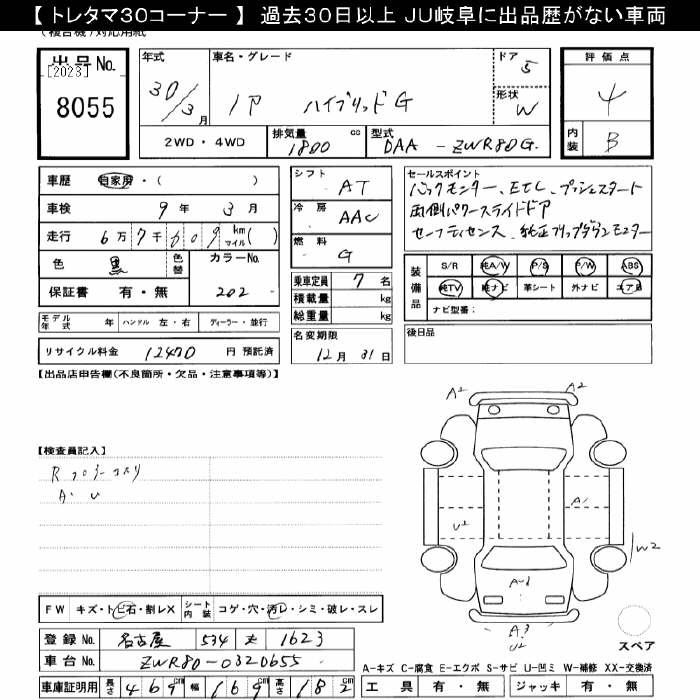 【 トレタマ30コーナー 】 過去30日以上 JU岐阜に出品歴がない車両
(複合機)対応用紙
出品No.
[2023]
8055
年式
30/3月
車名・グレード
ノア ハイブリッドG
ドア 5
形状 W
2WD・4WD
排気量 1800 cc
型式 DAA - ZWR80G
評価点
4
内装 B
車歴 自家用・( )
車検 9年 3月
走行 6万7千609 km マイル( )
色 黒 色替 カラーNo.
保証書 有・無 202
シフト AT
冷房 AAC
燃料 G
乗車定員 7名
積載量 kg
総重量 kg
セールスポイント
バックモニター、ETC、プッシュスタート
両側パワースライドドア
セーフティセンス、純正フリップダウンモニター
装備品
S/R 純A/W P/S P/W ABS
純TV 純ナビ 革シート 外ナビ エアB
ナビ型番:
モデル年式 年 ハンドル 左・右 ディーラー・並行
リサイクル料金 12470 円 預託済
名変期限
12月 31日
後日品
【出品店申告欄(不良箇所・欠品・注意事項等)】
A2 A2
【検査員記入】
A1
U2
W2
A-1
A3
U2
FW キズ・ト・ビ石・割レX シート内装 コゲ・穴・汚レ・シミ・破レ・スレ
登録No. 名古屋 534 1623
車台No. ZWR80-0320655
車庫証明用 長さ 469cm 幅 169cm 高さ 182cm
スペア
A-キズ C-腐食 E-エクボ S-サビ U-凹ミ W-補修 XX-交換済
工具 有・無 ジャッキ 有・無